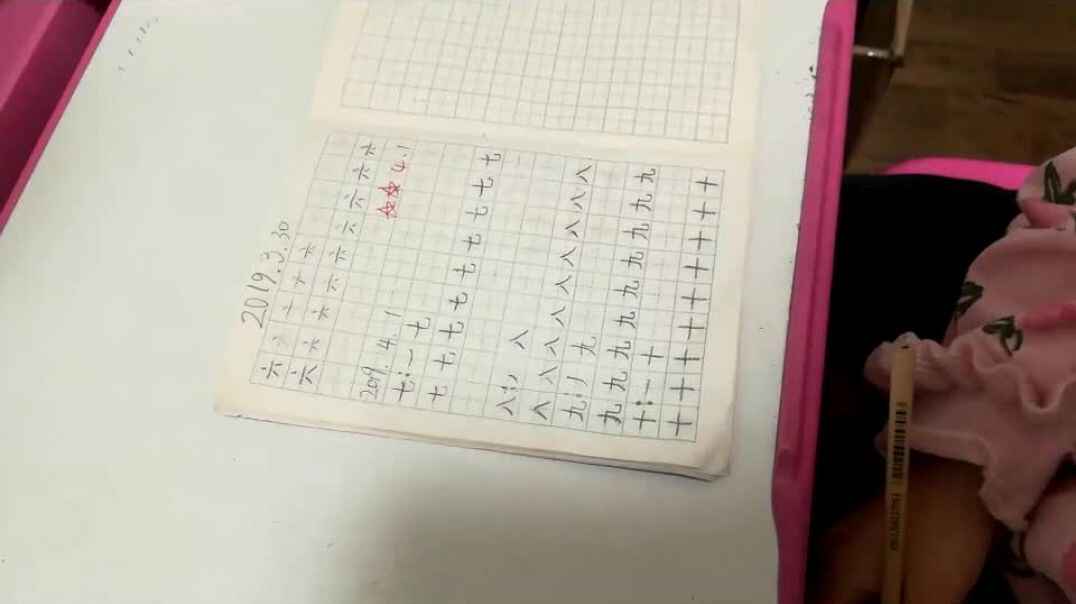 2019.3.30
六 丶 亠 六
六六六六六六六六六
4.1
2019.4.1
七:一七
七七七七七七七七七
八:丿 八
八八八八八八八八八
九:丿 九
九九九九九九九九九
十:一十
十十十十十十十十十